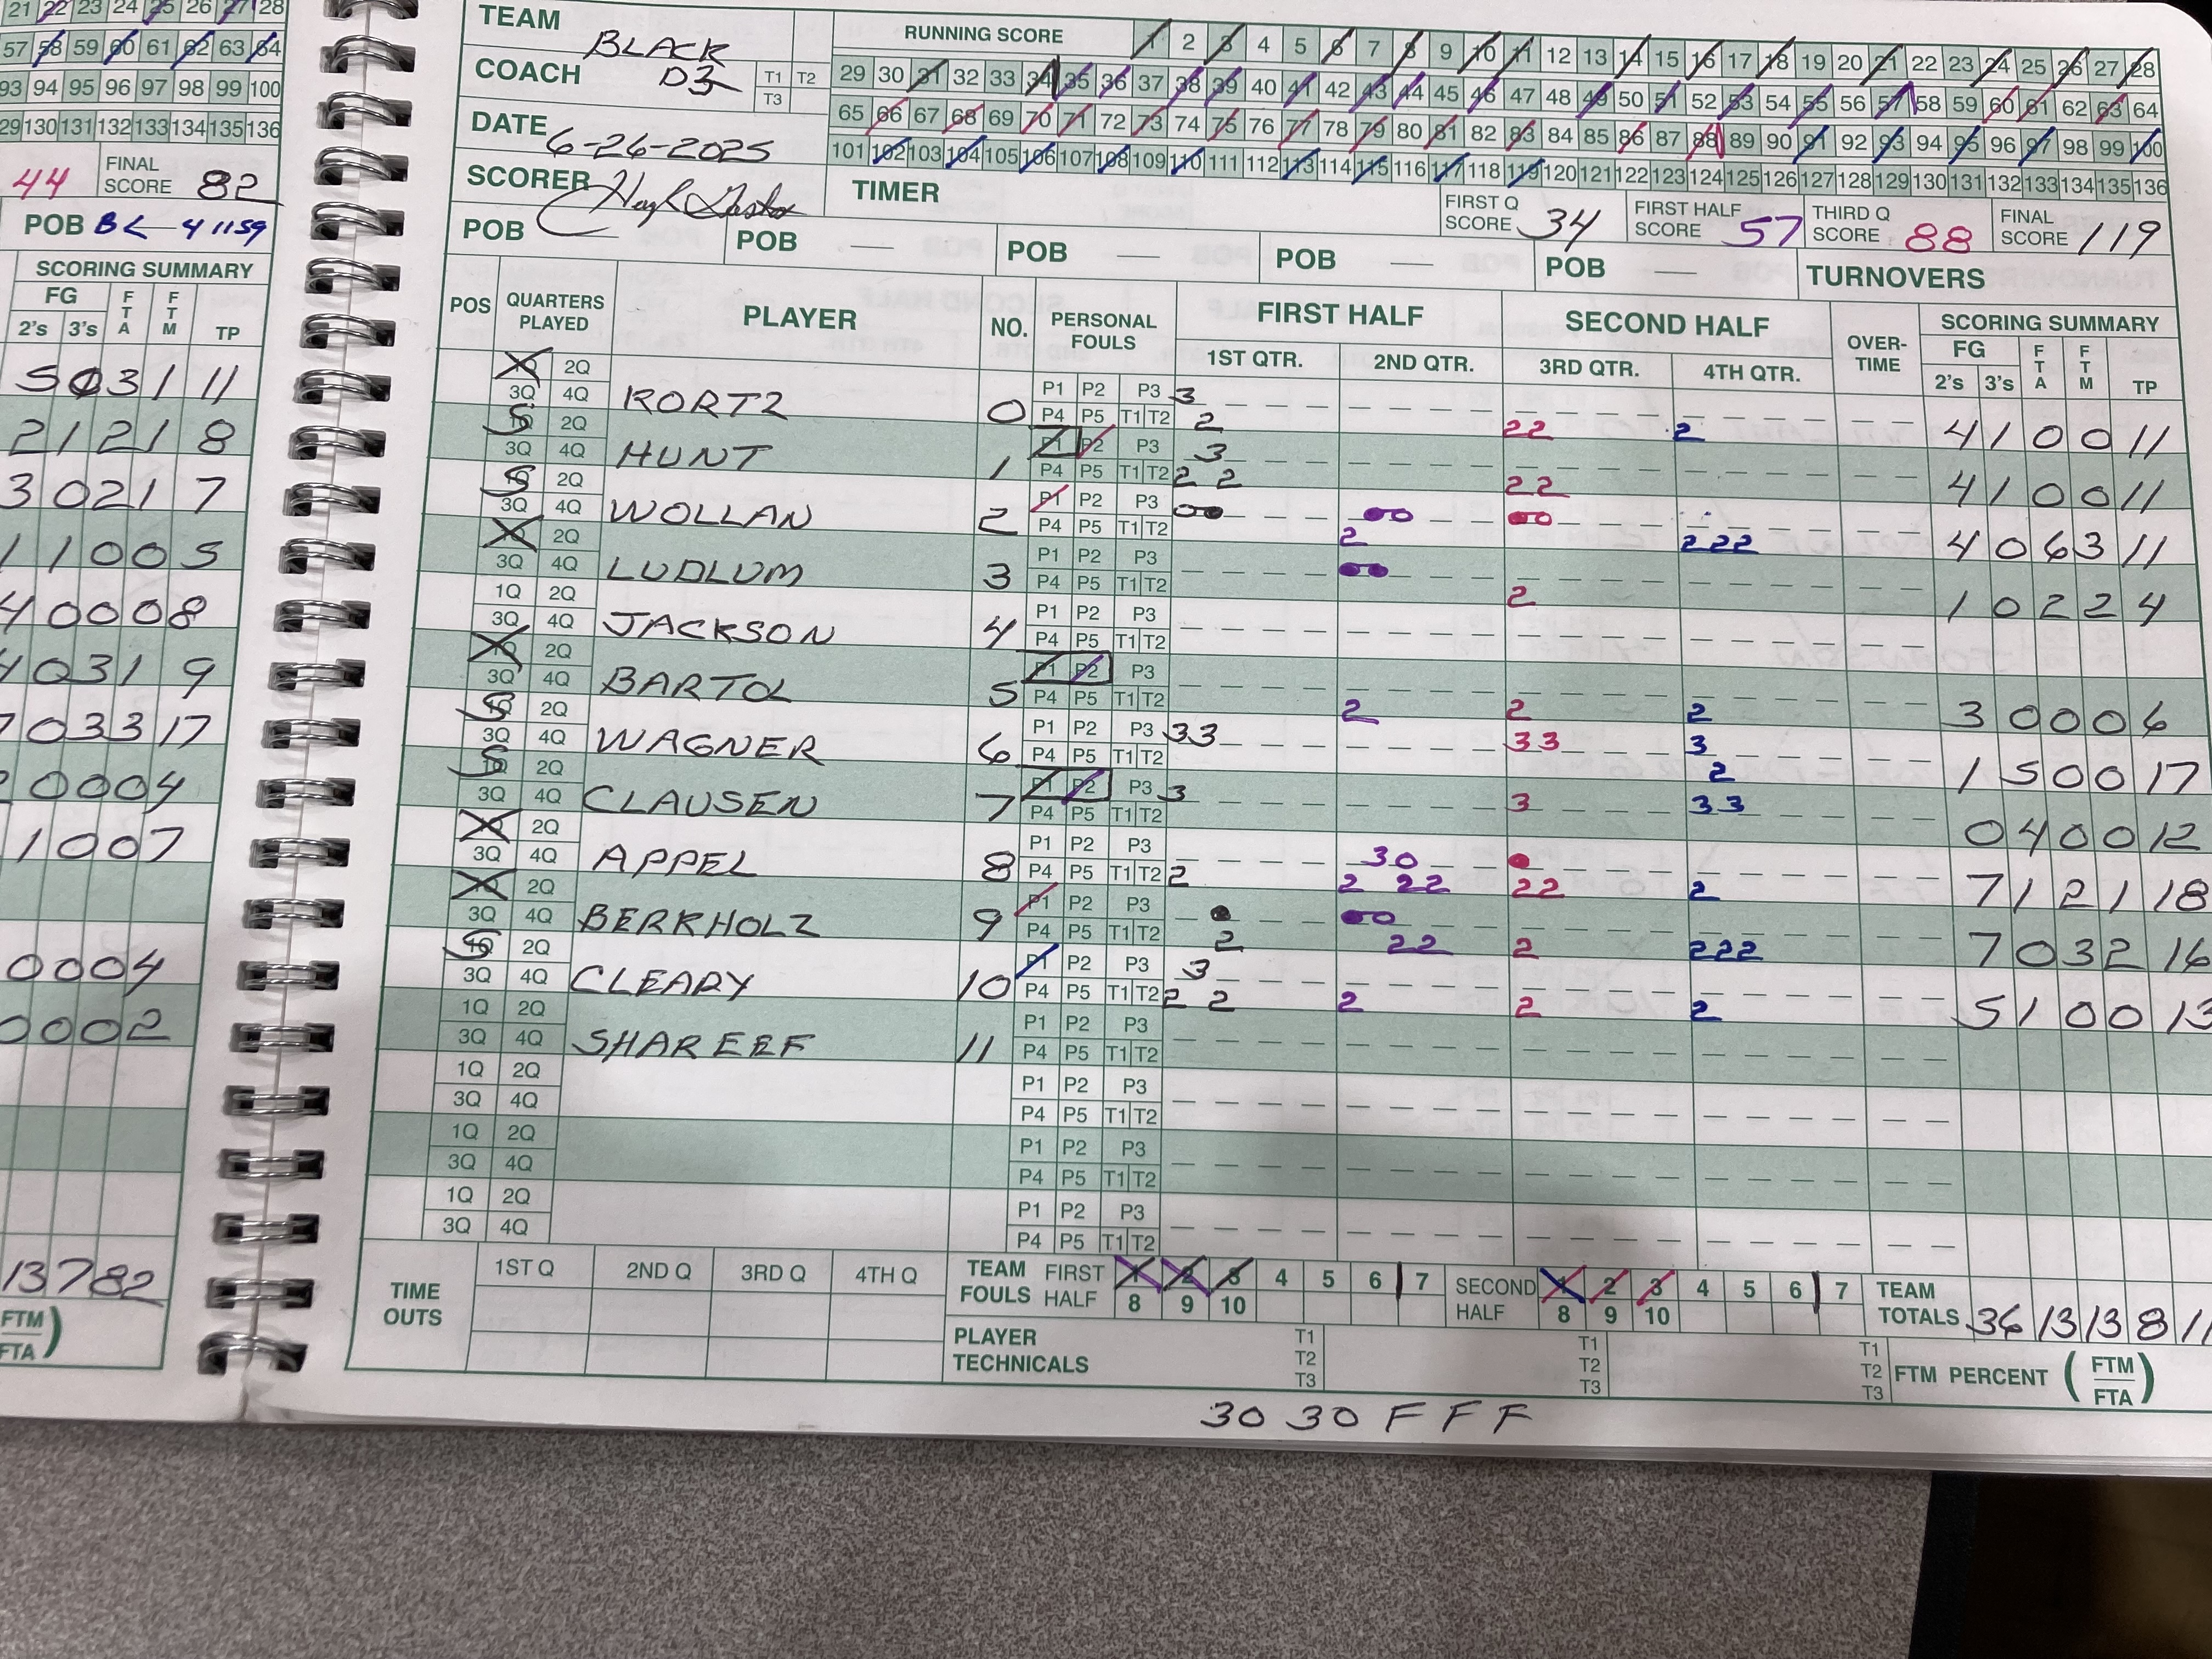 21 22 23 24 25 26 27 28
57 58 59 60 61 62 63 64
93 94 95 96 97 98 99 100
29 130 131 132 133 134 135 136
44 FINAL SCORE 82
POB BL 41159
SCORING SUMMARY
FG FTA FTM TP
2's 3's
5 0 3 1 11
2 1 2 1 8
3 0 2 1 7
1 1 0 0 5
4 0 0 0 8
4 0 3 1 9
7 0 3 3 17
2 0 0 0 4
1 0 0 7
0 0 0 4
0 0 0 2
13 7 82
FTM
FTA
TEAM BLACK
COACH D3 T1 T2 T3
DATE 6-26-2025
SCORER
TIMER
RUNNING SCORE 1 2 3 4 5 6 7 8 9 10 11 12 13 14 15 16 17 18 19 20 21 22 23 24 25 26 27 28
29 30 31 32 33 34 35 36 37 38 39 40 41 42 43 44 45 46 47 48 49 50 51 52 53 54 55 56 57 58 59 60 61 62 63 64
65 66 67 68 69 70 71 72 73 74 75 76 77 78 79 80 81 82 83 84 85 86 87 88 89 90 91 92 93 94 95 96 97 98 99 100
101 102 103 104 105 106 107 108 109 110 111 112 113 114 115 116 117 118 119 120 121 122 123 124 125 126 127 128 129 130 131 132 133 134 135 136
FIRST Q SCORE 34 FIRST HALF SCORE 57 THIRD Q SCORE 88 FINAL SCORE 119
POB — POB — POB — POB — POB — TURNOVERS
POS QUARTERS PLAYED PLAYER NO. PERSONAL FOULS FIRST HALF SECOND HALF OVER-TIME SCORING SUMMARY
1ST QTR. 2ND QTR. 3RD QTR. 4TH QTR. FG 2's 3's FTA FTM TP
2Q 3Q 4Q KORTZ 0 P1 P2 P3 P4 P5 T1 T2 3 2 22 2 4 1 0 0 11
S 2Q 3Q 4Q HUNT 1 P1 P2 P3 P4 P5 T1 T2 3 2 2 22 4 1 0 0 11
S 2Q 3Q 4Q WOLLAN 2 P1 P2 P3 P4 P5 T1 T2 2 222 4 0 6 3 11
2Q 3Q 4Q LUDLUM 3 P1 P2 P3 P4 P5 T1 T2 2 1 0 2 2 4
1Q 2Q 3Q 4Q JACKSON 4 P1 P2 P3 P4 P5 T1 T2
2Q 3Q 4Q BARTOL 5 P1 P2 P3 P4 P5 T1 T2 2 2 2 3 0 0 0 6
S 2Q 3Q 4Q WAGNER 6 P1 P2 P3 P4 P5 T1 T2 33 33 3 2 1 5 0 0 17
S 2Q 3Q 4Q CLAUSEN 7 P1 P2 P3 P4 P5 T1 T2 3 3 33 0 4 0 0 12
2Q 3Q 4Q APPEL 8 P1 P2 P3 P4 P5 T1 T2 2 30 2 22 22 2 7 1 2 1 18
2Q 3Q 4Q BERKHOLZ 9 P1 P2 P3 P4 P5 T1 T2 2 22 2 222 7 0 3 2 16
S 2Q 3Q 4Q CLEARY 10 P1 P2 P3 P4 P5 T1 T2 3 2 2 2 2 2 5 1 0 0 13
1Q 2Q 3Q 4Q SHAREEF 11 P1 P2 P3 P4 P5 T1 T2
1Q 2Q 3Q 4Q P1 P2 P3 P4 P5 T1 T2
1Q 2Q 3Q 4Q P1 P2 P3 P4 P5 T1 T2
1Q 2Q 3Q 4Q P1 P2 P3 P4 P5 T1 T2
TIME OUTS 1ST Q 2ND Q 3RD Q 4TH Q
TEAM FOULS FIRST HALF 1 2 3 4 5 6 7 8 9 10 SECOND HALF 1 2 3 4 5 6 7 8 9 10
TEAM TOTALS 36 13 13 8 11
PLAYER TECHNICALS T1 T2 T3 T1 T2 T3 T1 T2 T3
FTM PERCENT (FTM FTA)
30 30 F F F